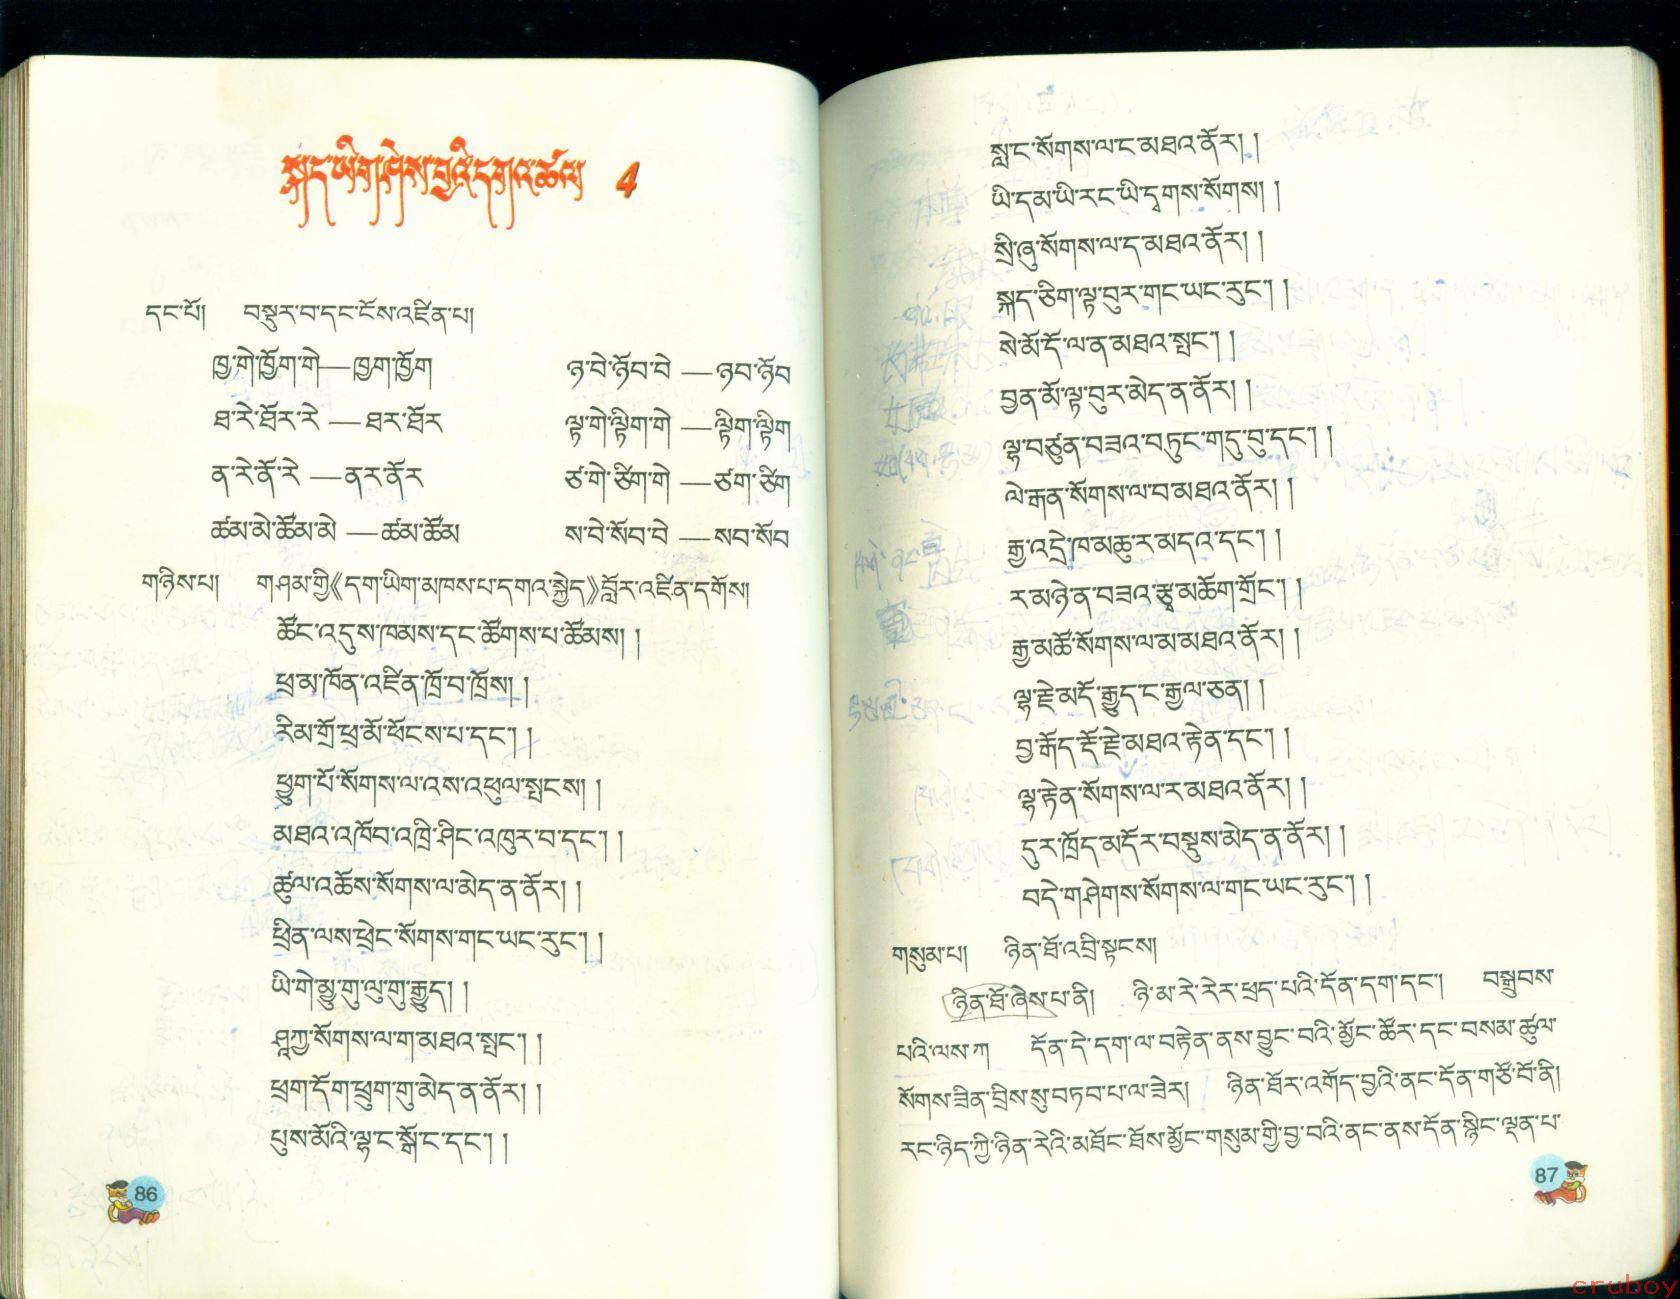 སྐད་ཡིག་ཤེས་བྱའི་དགའ་ཚལ། 4
དང་པོ། བསྡུར་བ་དང་ངོས་འཛིན་པ།
ཁྱ་གེ་ཁྱོག་གེ—ཁྱག་ཁྱོག ཉ་བེ་ཉོབ་བེ —ཉབ་ཉོབ
ཐ་རེ་ཐོར་རེ —ཐར་ཐོར ལྟ་གེ་ལྟིག་གེ —ལྟིག་ལྟིག
ན་རེ་ནོ་རེ —ནར་ནོར ཙ་གེ་ཙིག་གེ —ཙག་ཙིག
ཚམ་མེ་ཚོམ་མེ —ཚམ་ཚོམ ས་བེ་སོབ་བེ —སབ་སོབ
གཉིས་པ། གཤམ་གྱི《དག་ཡིག་མཁས་པ་དགའ་སྐྱེད》བློར་འཛིན་དགོས།
ཚོང་འདུས་ཁམས་དང་ཚོགས་པ་ཚོམས། །
ཕྲ་མ་ཁོན་འཛིན་ཁྲོ་བ་ཁྲོས། །
རིམ་གྲོ་ཕྲ་མོ་ཕོངས་པ་དང་། །
ཕྱུག་པོ་སོགས་ལ་འས་འཕུལ་སྤངས། །
མཐའ་འཁོབ་འཁྲི་ཤིང་འཁུར་བ་དང་། །
ཚུལ་འཆོས་སོགས་ལ་མེད་ན་ནོར། །
ཕྲིན་ལས་ཕྲེང་སོགས་གང་ཡང་རུང་། །
ཡི་གེ་མྱུ་གུ་ལུ་གུ་རྒྱུད། །
ཤཱཀྱ་སོགས་ལ་ག་མཐའ་སྤང་། །
ཕྲག་དོག་ཕྲུག་གུ་མེད་ན་ནོར། །
པུས་མོའི་ལྷ་ང་སྒོ་ང་དང་། །
86
སླ་ང་སོགས་ལ་ང་མཐའ་ནོར། །
ཡི་དམ་ཡི་རང་ཡི་དྭགས་སོགས། །
སྲི་ཞུ་སོགས་ལ་ད་མཐའ་ནོར། །
སྐད་ཅིག་ལྟ་བུར་གང་ཡང་རུང་། །
སེ་མོ་དོ་ལ་ན་མཐའ་སྤང་། །
བྱན་མོ་ལྟ་བུར་མེད་ན་ནོར། །
ལྷ་བཙུན་བཟའ་བཏུང་གདུ་བུ་དང་། །
ལེ་རྒན་སོགས་ལ་བ་མཐའ་ནོར། །
རྒྱ་འདྲེ་ཁ་མཆུ་ར་མདའ་དང་། །
ར་མཉེན་བཟའ་རྩྭ་མཆོག་གྲོང་། །
རྒྱ་མཚོ་སོགས་ལ་མ་མཐའ་ནོར། །
ལྷ་རྗེ་མདོ་རྒྱུད་ང་རྒྱལ་ཅན། །
བྱ་རྒོད་རྡོ་རྗེ་མཐའ་རྟེན་དང་། །
ལྷ་རྟེན་སོགས་ལ་ར་མཐའ་ནོར། །
དུར་ཁྲོད་མདོར་བསྡུས་མེད་ན་ནོར། །
བདེ་གཤེགས་སོགས་ལ་གང་ཡང་རུང་། །
གསུམ་པ། ཉིན་ཐོ་འབྲི་སྟངས།
ཉིན་ཐོ་ཞེས་པ་ནི། ཉི་མ་རེ་རེར་ཕྲད་པའི་དོན་དག་དང་། བསྒྲུབས་
པའི་ལས་ཀ དོན་དེ་དག་ལ་བརྟེན་ནས་བྱུང་བའི་མྱོང་ཚོར་དང་བསམ་ཚུལ་
སོགས་ཟིན་བྲིས་སུ་བཏབ་པ་ལ་ཟེར། ཉིན་ཐོར་འགོད་བྱའི་ནང་དོན་གཙོ་བོ་ནི།
རང་ཉིད་ཀྱི་ཉིན་རེའི་མཐོང་ཐོས་མྱོང་གསུམ་གྱི་བྱ་བའི་ནང་ནས་དོན་སྙིང་ལྡན་པ་
87
cruboy